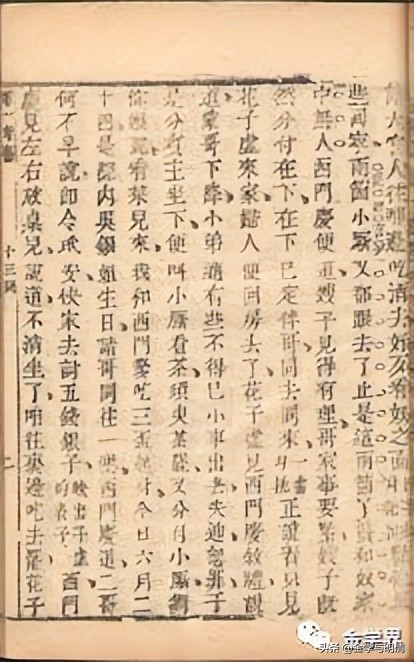 往那邊吃酒去好歹看奴之面
些回家兩個小廝又都跟去了止是這兩個丫鬟和奴家
中無人西門慶便道嫂子見得有理哥家事要緊嫂子旣
然分付在下在下已定伴哥同去同來正說着只見
花子虛來家婦人便回房去了花子虛見西門慶敘禮說
道蒙哥下降小弟適有些不得已小事出去失迎恕罪于
是分賓主坐下便叫小廝看茶須臾茶罷又分付小廝對
你娘說看菜兒來我和西門爹吃三盃起身今日六月二
十四是院内吳銀姐生日請哥同往一樂西門慶道二哥
何不早說卽令玳安快家去討五錢銀子映出子虛的表子西門
慶見左右放桌兒說道不消坐了咱往裏邊吃去罷花子
十三回
二
金学界
头条 @金学与明清